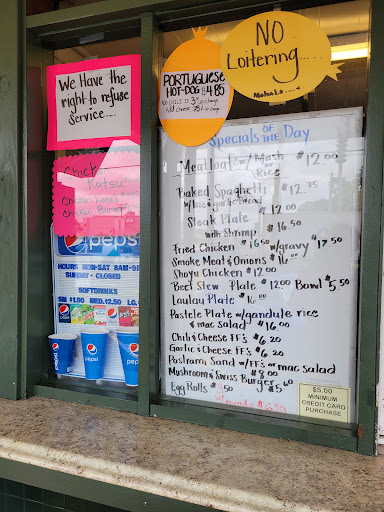 We Have the
right to refuse
Service....
PORTUGUESE
HOT-DOG $4.85
Add cheese 75¢
NO
Loitering....
Mahalo...
Chicken
Katsu
Chicken
Chicken Burger
pepsi
HOURS MON-SAT 8AM-9
SUNDAY - CLOSED
SOFTDRINKS
SM $1.90 MED. $2.50 LG.
pepsi
pepsi
pepsi
Specials OF THE Day
Meatloaf w/Mash or Rice $12.00
Baked Spaghetti $12.75
w/ garlic bread
Steak Plate $12.00
with Shrimp $16.50
Fried Chicken $16.50 w/gravy $17.50
Smoke Meat & Onions $16.00
Shoyu Chicken $12.00
Beef Stew Plate $12.00 Bowl $5.50
Laulau Plate $16.00
Pastele Plate w/gandule rice
& mac Salad $16.00
Chili & Cheese FF's $6.20
Garlic & Cheese FF's $6.20
Pastrami Sand w/FF's or mac salad
Mushroom & Swiss Burger $8.00
Egg Rolls
$5.00
MINIMUM
CREDIT CARD
PURCHASE